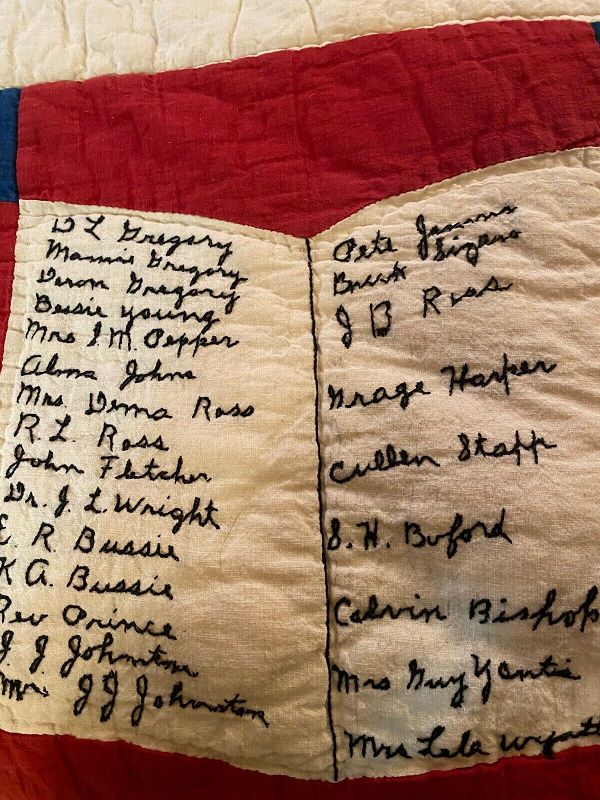 D L Gregory
Mamie Gregory
Deron Gregory
Bessie Young
Mrs I. M. Pepper
Alma Johns
Mrs. Dema Ross
R. L. Ross
John Fletcher
Dr. J. L. Wright
E. R. Bussie
K A. Bussie
Rev Prince
J J Johnston
Mrs J J Johnston
Pete
J B Ross
Harper
Cullen Stapp
S. H. Buford
Calvin Bishop
Mrs Guy Yantis
Mrs Lela Wyatt